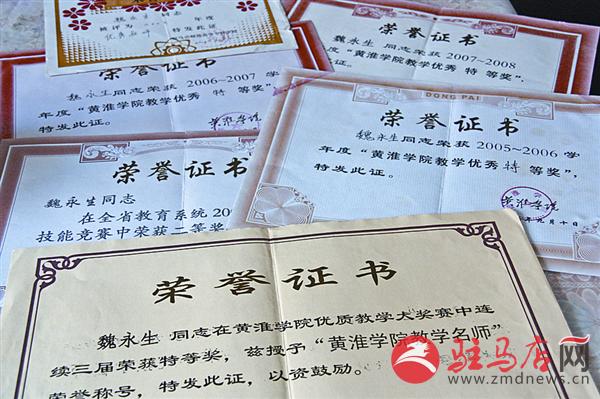 魏永生 同志
年度
被评为
特发此证
荣誉证书
魏永生 同志荣获 2007~2008
年度“黄淮学院教学优秀 特 等奖”,
证。
荣誉证书
魏永生同志荣获 2006~2007 学
年度“黄淮学院教学优秀 特 等奖”,
特发此证。
DONG PAI
荣誉证书
魏永生 同志荣获 2005~2006 学
年度“黄淮学院教学优秀 特 等奖”,
特发此证。
黄淮学院
月十日
荣誉证书
魏永生同志
在全省教育系统 20
技能竞赛中荣获二等奖
荣誉证书
魏永生 同志在黄淮学院优质教学大奖赛中连
续三届荣获特等奖,兹授予“黄淮学院教学名师”
荣誉称号,特发此证,以资鼓励。
驻马店网
www.zmdnews.cn